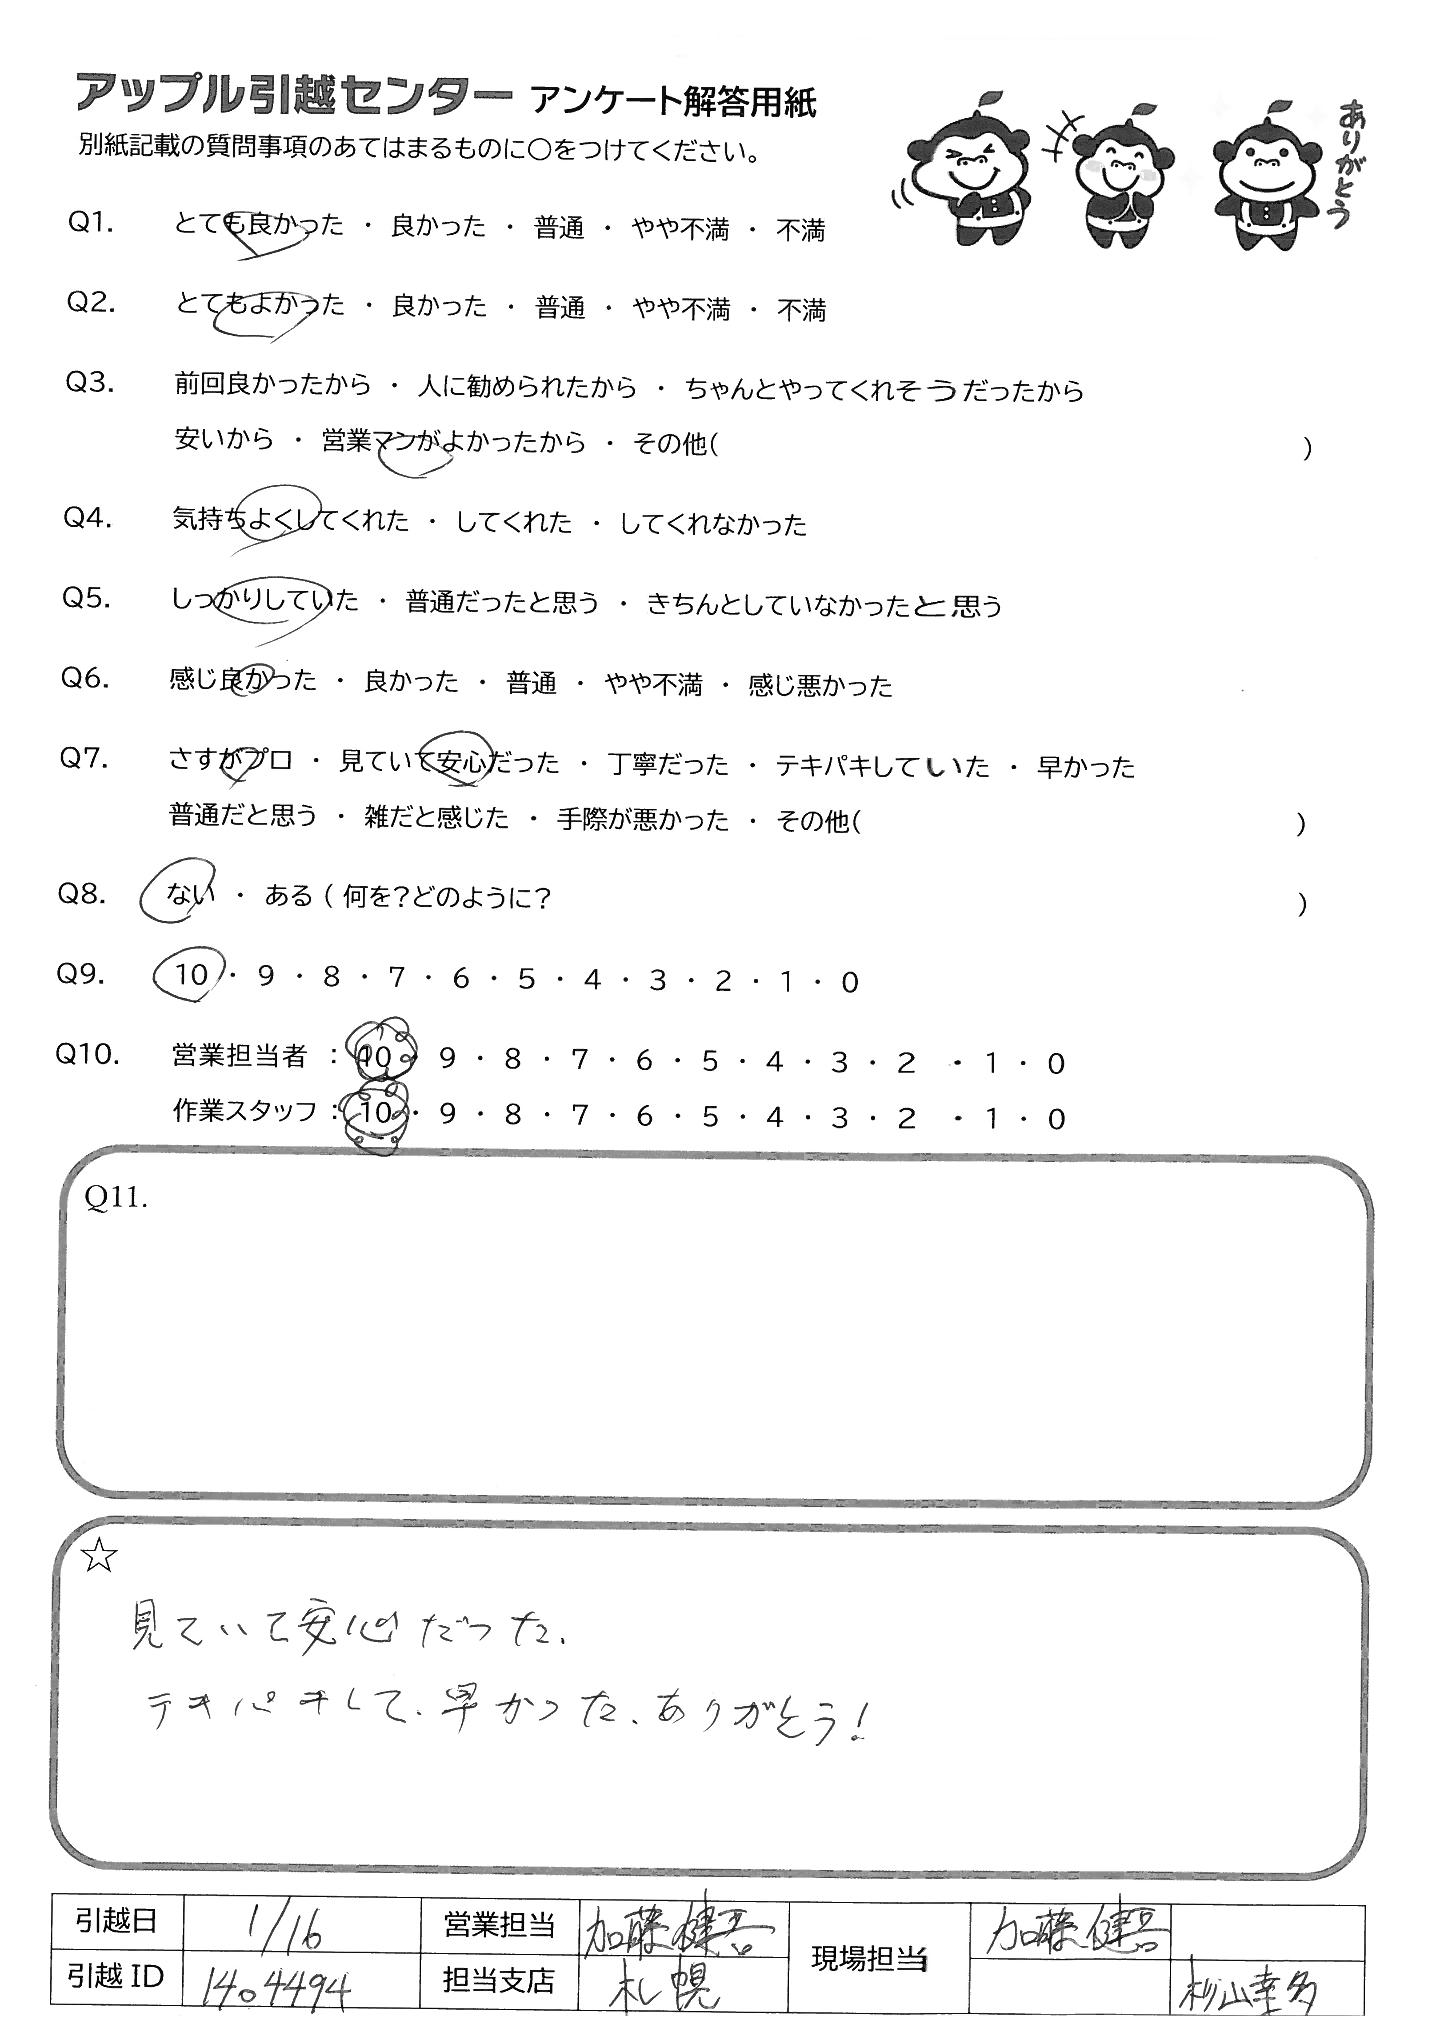 アップル引越センター アンケート解答用紙
別紙記載の質問事項のあてはまるものに○をつけてください。
ありがとう
Q1. とても良かった ・ 良かった ・ 普通 ・ やや不満 ・ 不満
Q2. とてもよかった ・ 良かった ・ 普通 ・ やや不満 ・ 不満
Q3. 前回良かったから ・ 人に勧められたから ・ ちゃんとやってくれそうだったから
安いから ・ 営業マンがよかったから ・ その他( )
Q4. 気持ちよくしてくれた ・ してくれた ・ してくれなかった
Q5. しっかりしていた ・ 普通だったと思う ・ きちんとしていなかったと思う
Q6. 感じ良かった ・ 良かった ・ 普通 ・ やや不満 ・ 感じ悪かった
Q7. さすがプロ ・ 見ていて安心だった ・ 丁寧だった ・ テキパキしていた ・ 早かった
普通だと思う ・ 雑だと感じた ・ 手際が悪かった ・ その他( )
Q8. ない ・ ある ( 何を?どのように? )
Q9. 10 ・ 9 ・ 8 ・ 7 ・ 6 ・ 5 ・ 4 ・ 3 ・ 2 ・ 1 ・ 0
Q10. 営業担当者 : 10 ・ 9 ・ 8 ・ 7 ・ 6 ・ 5 ・ 4 ・ 3 ・ 2 ・ 1 ・ 0
作業スタッフ : 10 ・ 9 ・ 8 ・ 7 ・ 6 ・ 5 ・ 4 ・ 3 ・ 2 ・ 1 ・ 0
Q11.
☆
見ていて安心だった、
テキパキして、早かった、ありがとう!
引越日 1/16 営業担当 加藤健吾 現場担当 加藤健吾
引越ID 1404494 担当支店 札幌 杉山幸多